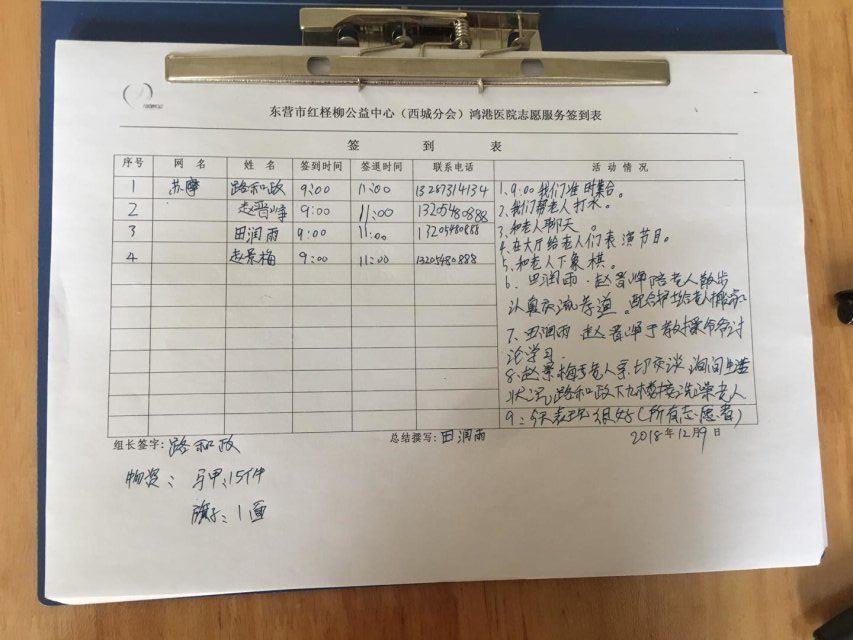 东营市红柽柳公益中心（西城分会）鸿港医院志愿服务签到表
签 到 表
序号 网 名 姓 名 签到时间 签退时间 联系电话 活 动 情 况
1 苏摩 路和政 9:00 11:00 13287314134
2 赵晋峥 9:00 11:00 13205480888
3 田润雨 9:00 11:00 13205480888
4 赵景梅 9:00 11:00 13205480888
1、9:00我们准时集合。
2、我们帮老人打水。
3、和老人聊天。
4、在大厅给老人们表演节目。
5、和老人下象棋。
6、田润雨、赵晋峥陪老人散步
认真交流孝道。配合护士给老人
7、田润雨 赵晋峥于
论学习
8、赵景梅与老人亲切交谈，询问生活
状况，路和政下九楼接洗澡老人
9、今天表现很好（所有志愿者）
组长签字：路和政
总结撰写：田润雨
2018年12月9日
物资：马甲：15件
旗子：1面